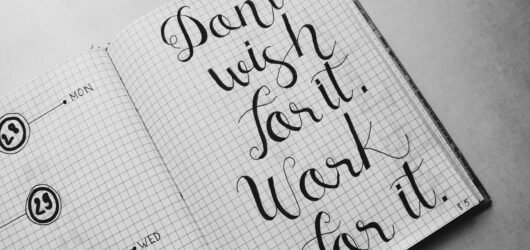 28 MON
29
WED
Don't
wish
for it.
Work
for it.